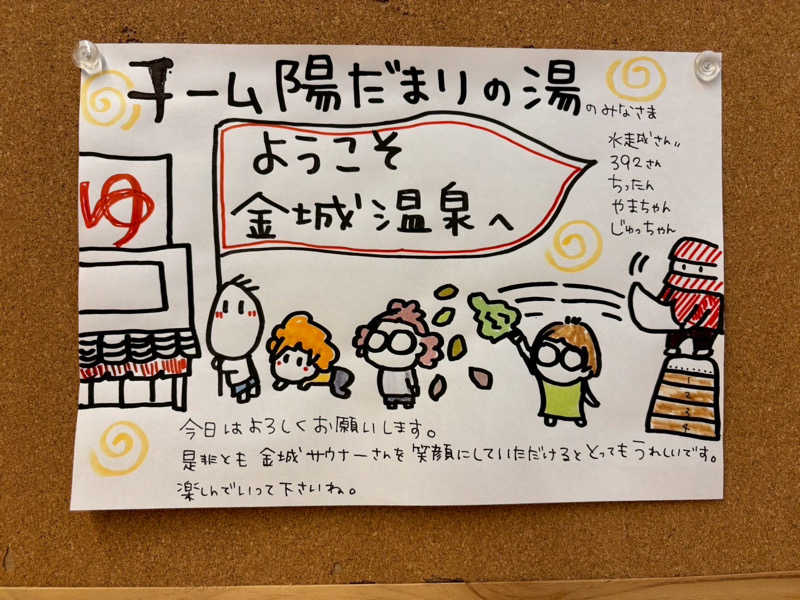 チーム陽だまりの湯のみなさま
ようこそ
金城温泉へ
水走城さん
392さん
ちったん
やまちゃん
じゅっちゃん
ゆ
1
2
3
4
今日はよろしくお願いします。
是非とも金城サウナーさんを笑顔にしていただけるととってもうれしいです。
楽しんでいって下さいね。